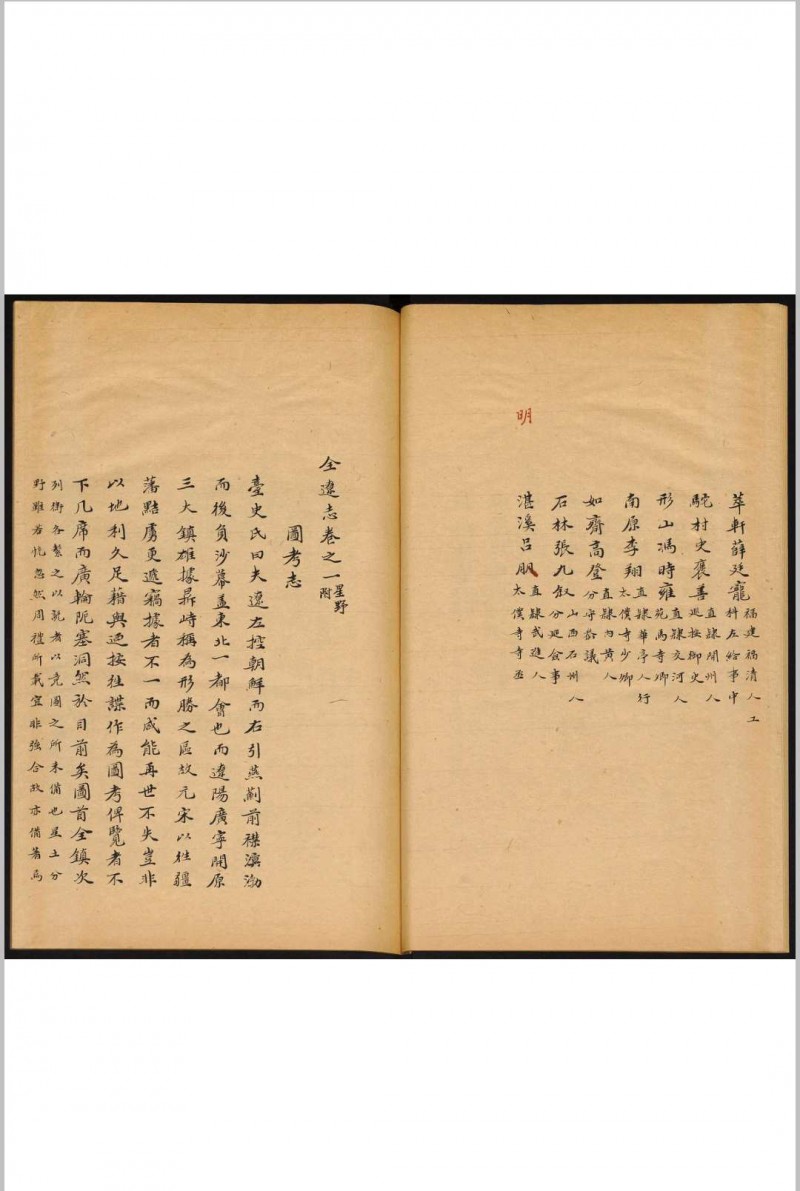 萃軒薛廷寵福建福清人工科左給事中
駝村史褒善直隸開州人巡按御史
形山馮時雍直隸交河人苑馬寺卿
南原李翔直隸華亭人行太僕寺少卿
如齋高登直隸內黃人分守參議
石林張九叙山西石州人分巡僉事
湛溪呂朋直隸武進人太僕寺寺丞
明
全遼志卷之一星野附
圖考志
臺史氏曰夫遼左控朝鮮而右引燕薊前襟溟渤
而後負沙幕盖東北一都會也而遼陽廣寧開原
三大鎮雄據鼎峙稱為形勝之區故元宋以往疆
藩黠虜更遞竊據者不一而咸能再世不失豈非
以地利久足藉與廼按往諜作為圖考俾覽者不
下几席而廣輪阨塞洞然於目前矣圖首全鎮次
列衛各繫之以說者以竟圖之所未備也星土分
野雖若恍忽然周禮所載宜非強合故亦備著焉
一